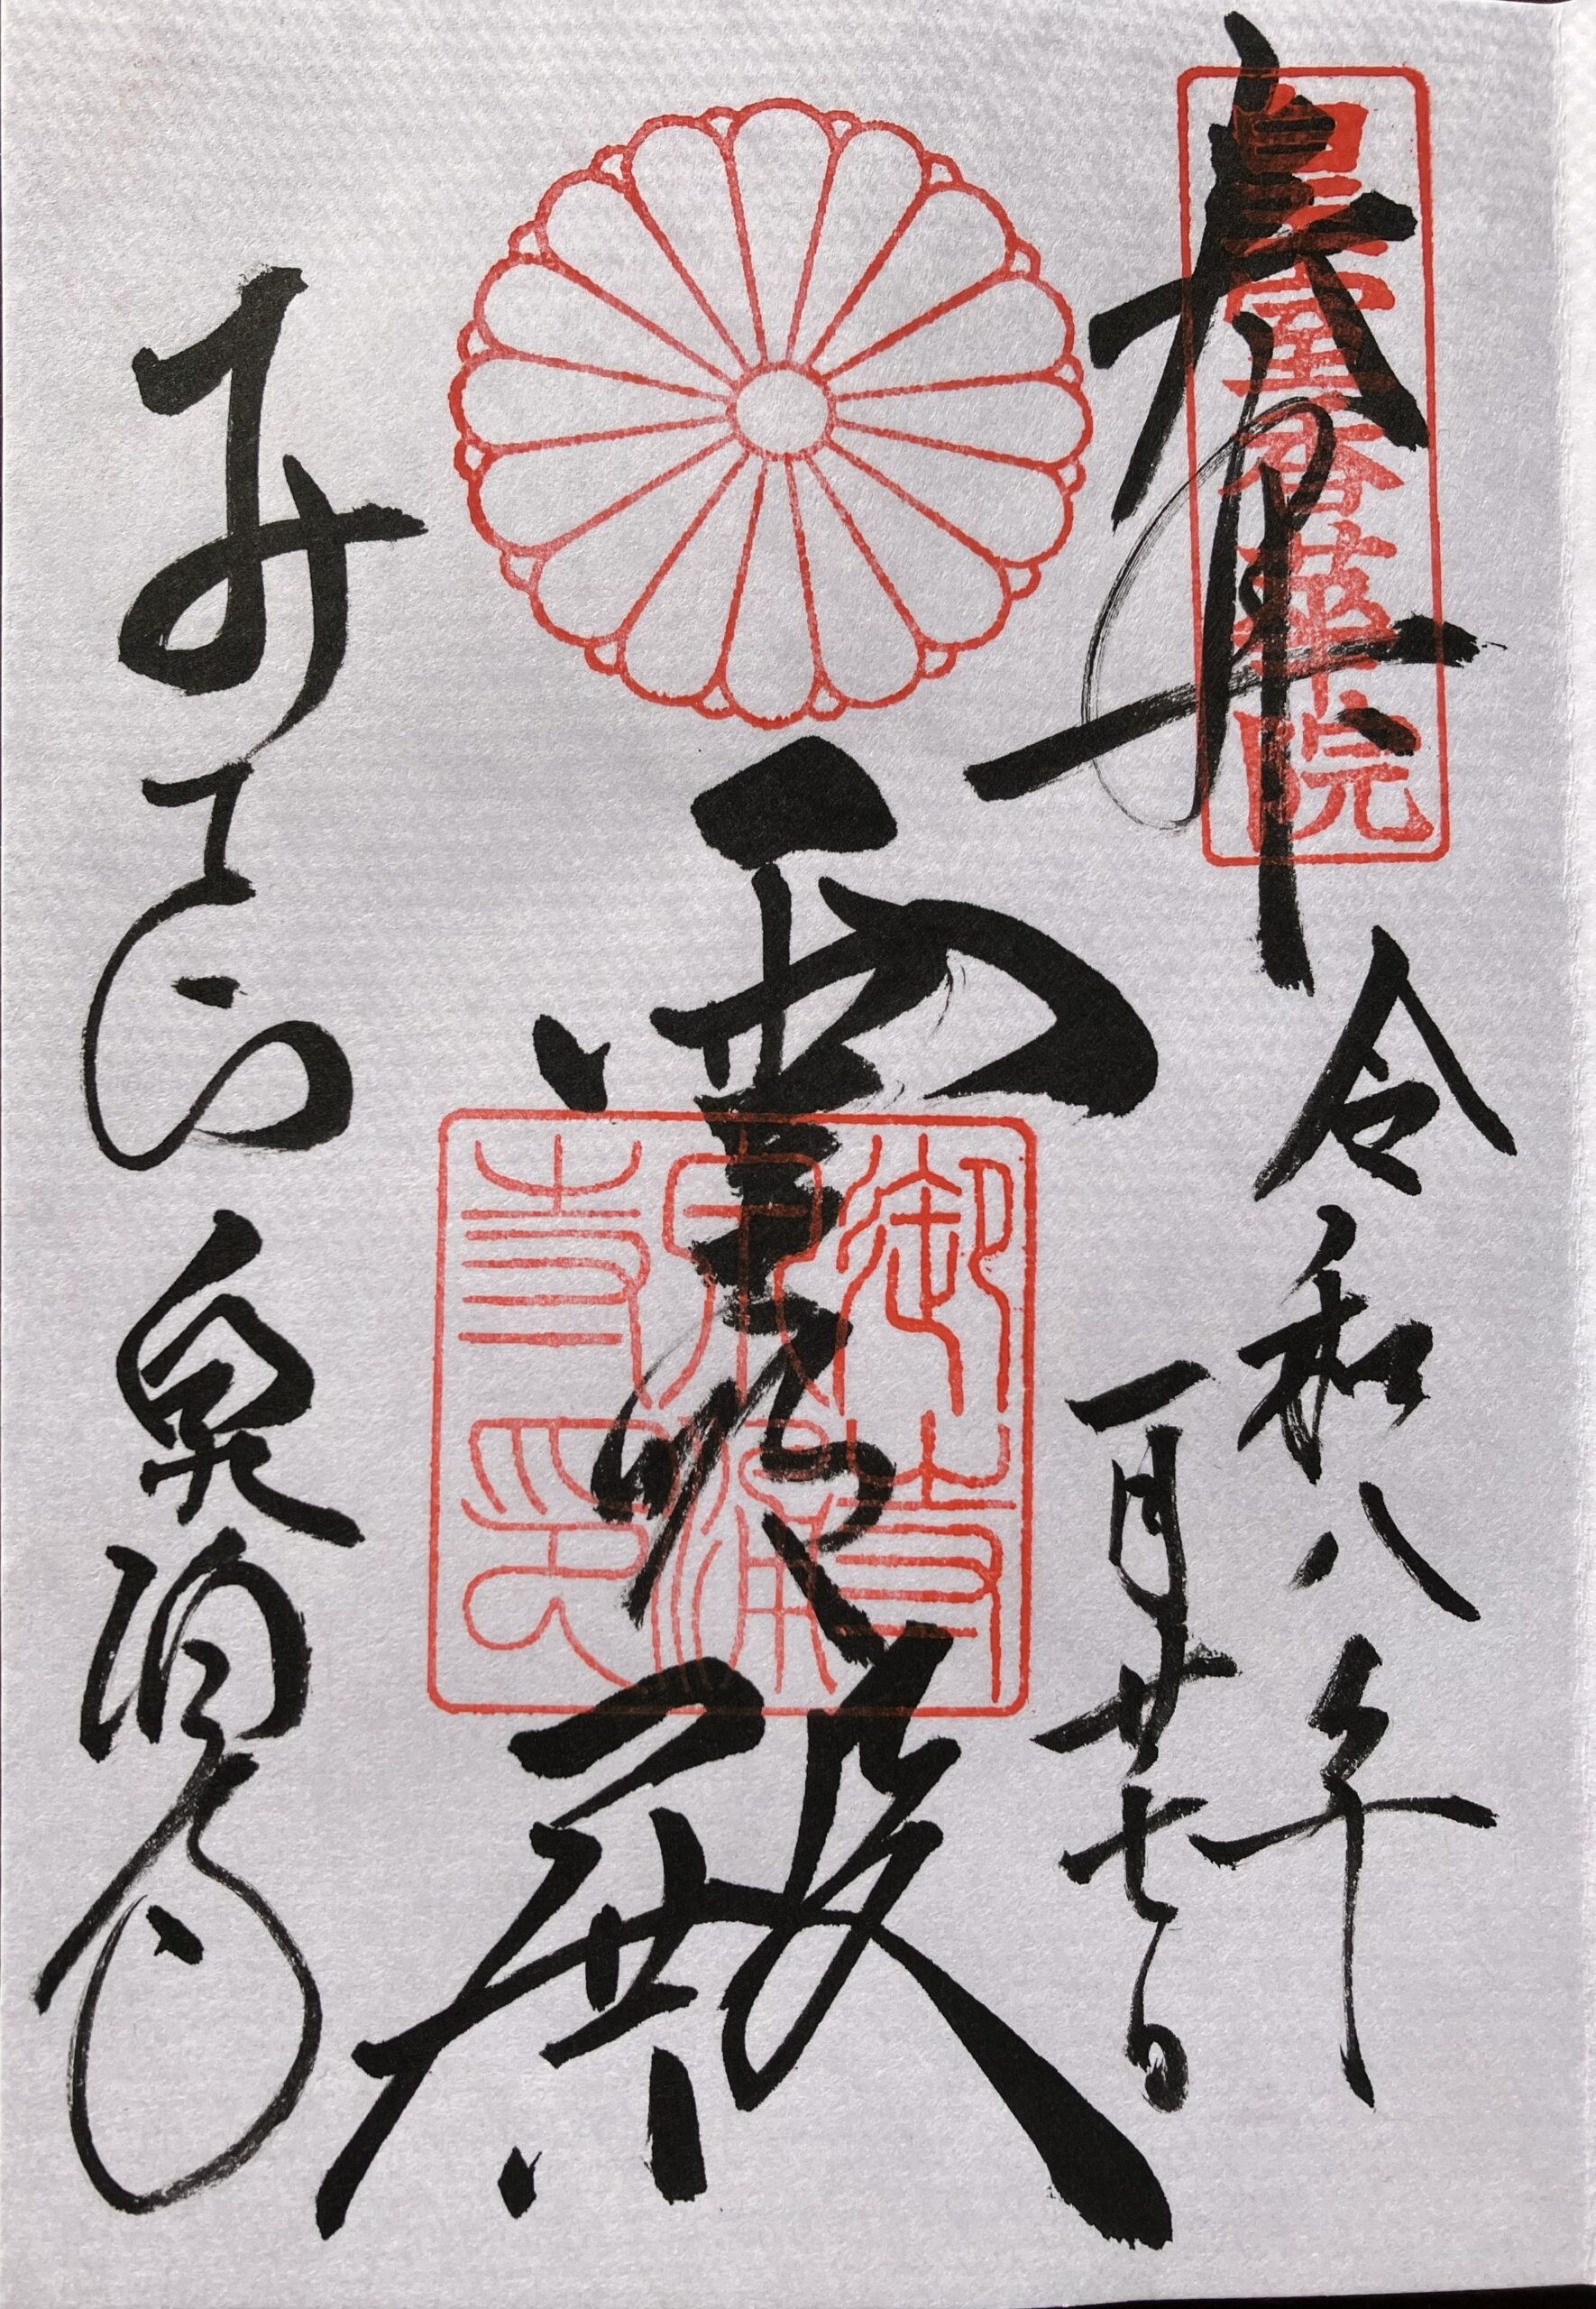 奉拝
皇室香華院
令和八年
一月廿七日
霊明殿
御寺泉涌寺印
みてら
泉涌寺